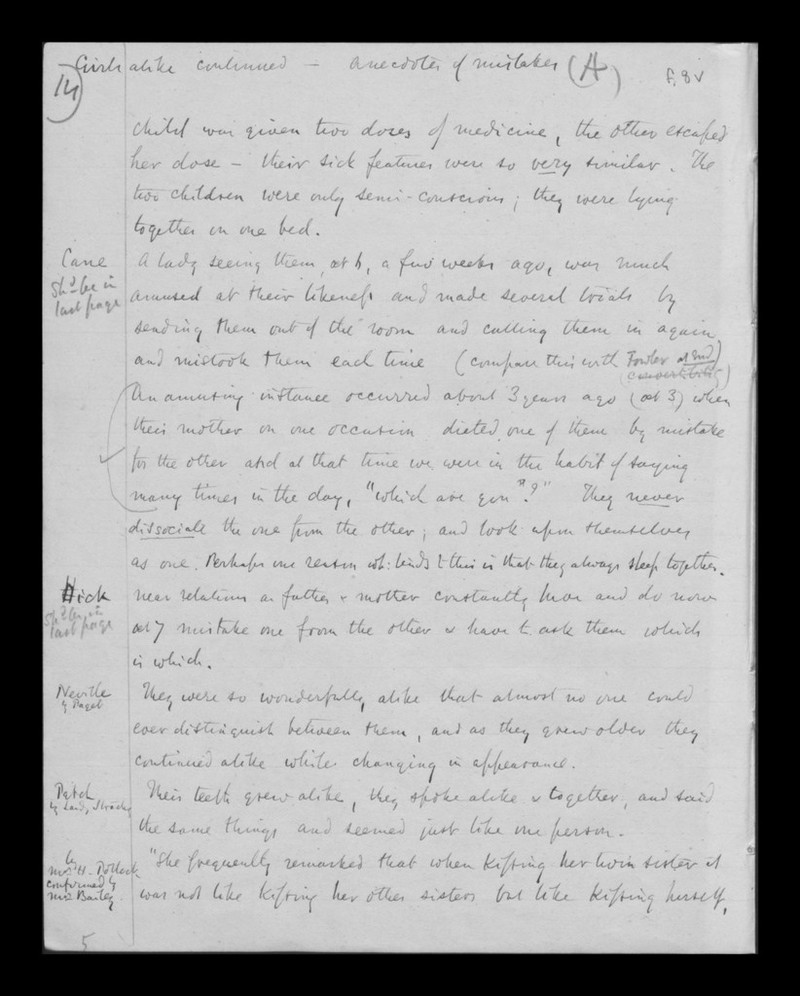 Girls alike continued — anecdotes of mistakes (A)
f. 8v
14
child was given two doses of medicine, the other escaped
her dose — their sick features were so very similar. The
two children were only semi-conscious; they were lying
together in one bed.
Cane
Shd be in
last page
A lady seeing them, æt 6, a few weeks ago, was much
amused at their likeness and made several trials by
sending them out of the room and calling them in again
and mistook them each time (compare this with Fowler at end)
An amusing instance occurred about 3 years ago (æt 3) when
their mother on one occasion dieted one of them by mistake
for the other and at that time we were in the habit of saying
many times in the day, "which are you"?" They never
dissociate the one from the other; and look upon themselves
as one. Perhaps one reason wh: tends to this is that they always sleep together.
Hick
Shd be in
last page
near relations as father & mother constantly have and do now
æt 7 mistake one from the other & have to ask them which
is which.
Neville
by Paget
They were so wonderfully alike that almost no one could
ever distinguish between them, and as they grew older they
continued alike while changing in appearance.
Petch
by Lady Strachey
Their teeth grew alike, they spoke alike & together, and said
the same things and seemed just like one person.
by
Mrs H. Pollock
confirmed by
Mrs Bailey.
"She frequently remarked that when kissing her twin sister it
was not like kissing her other sisters but like kissing herself,
5